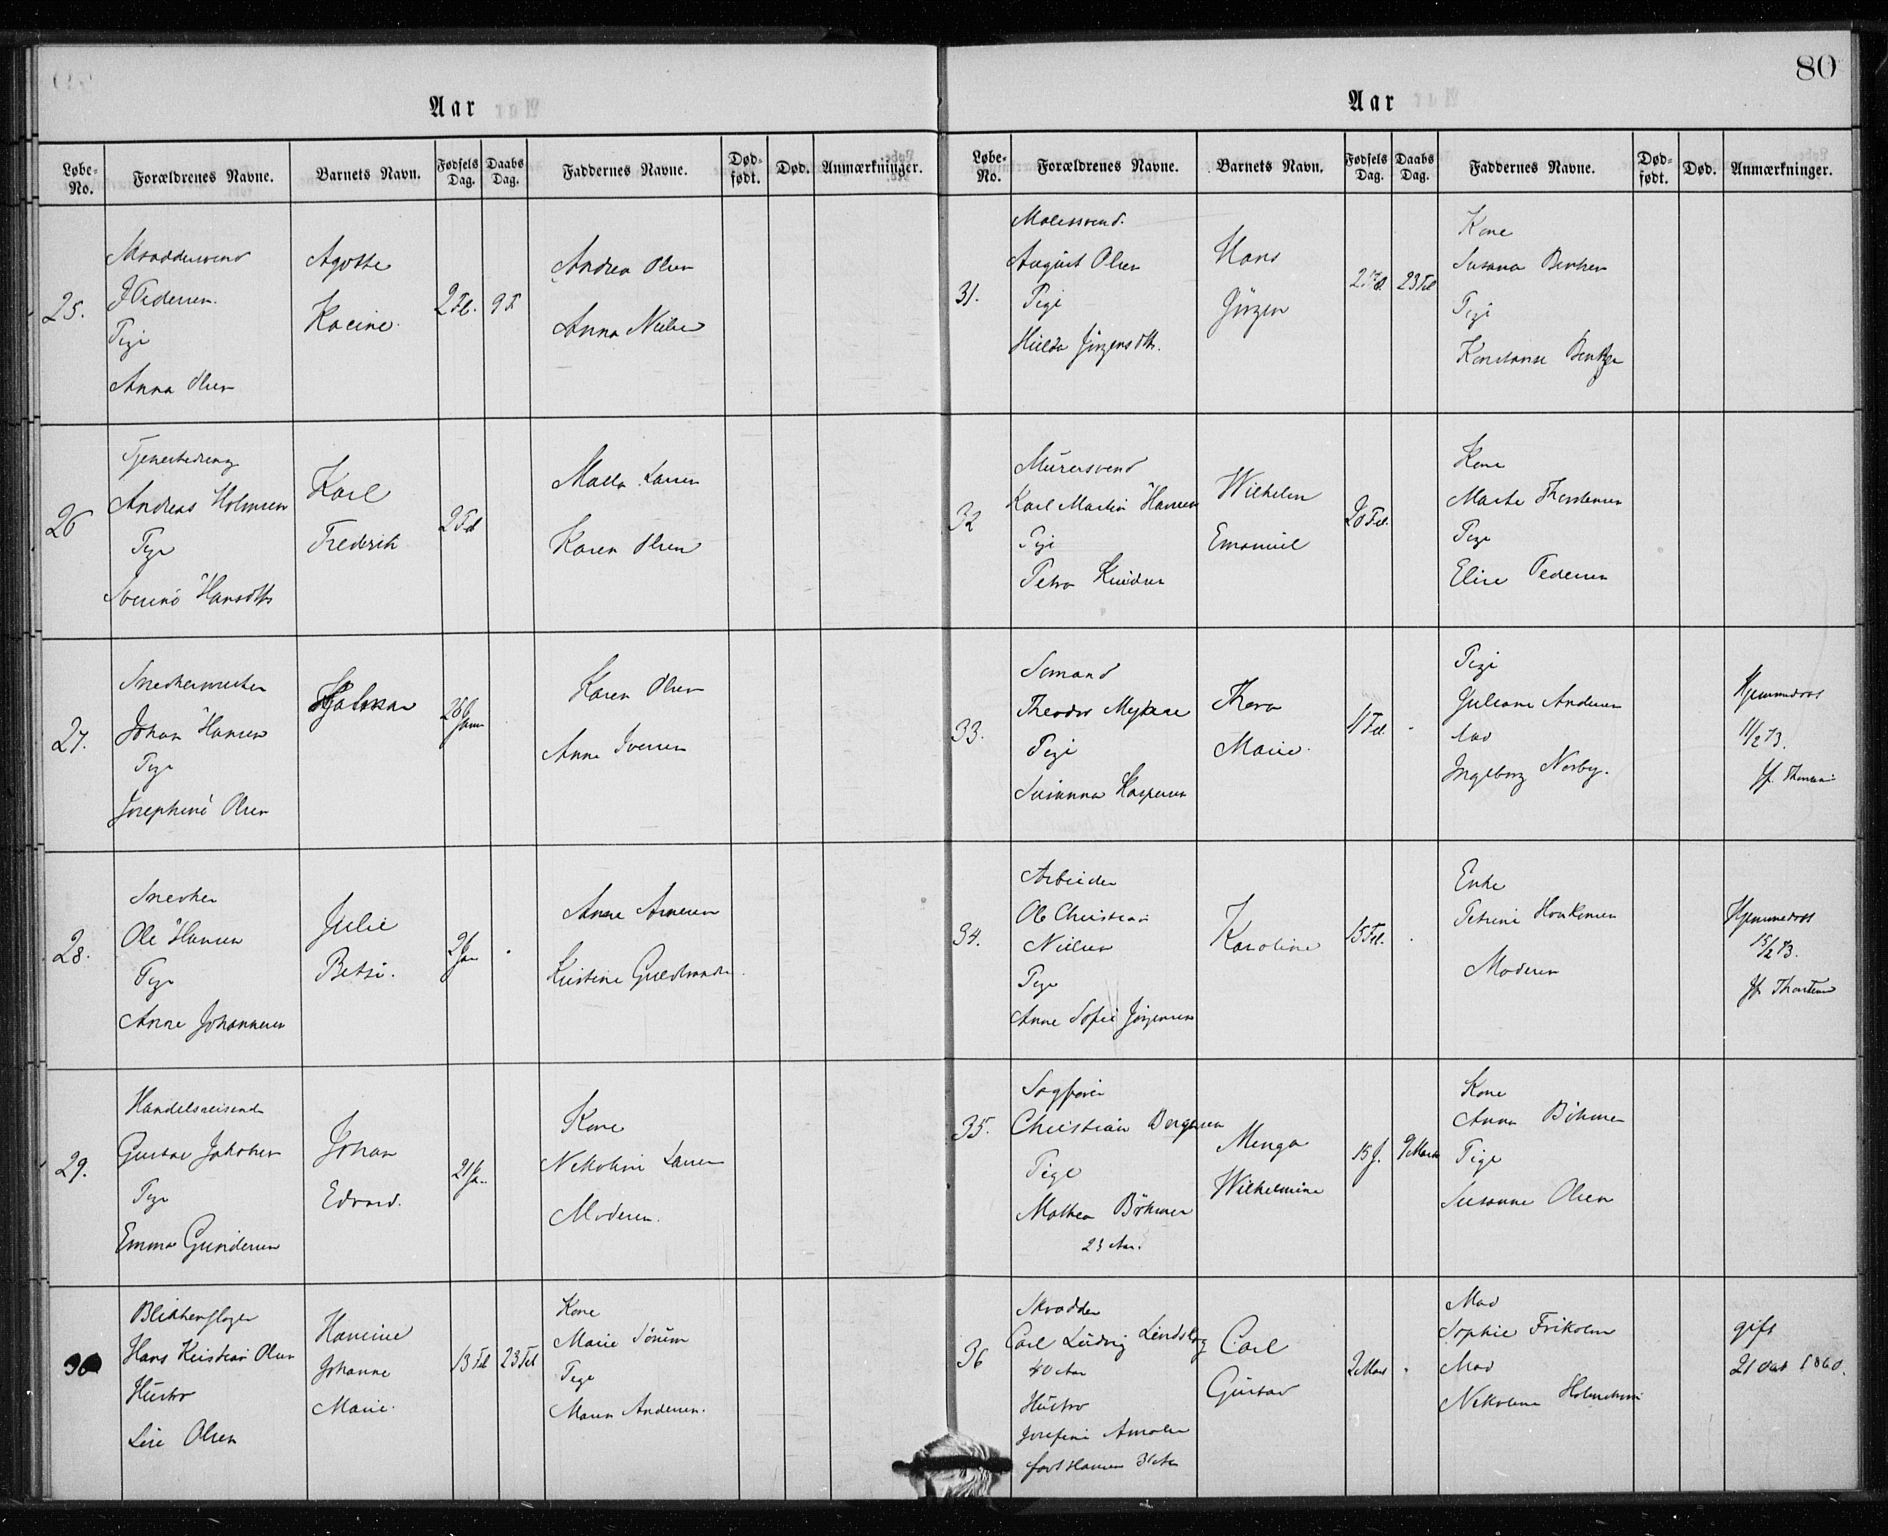 80
Aar
Løbe-No. Forældrenes Navne. Barnets Navn. Fødsels Dag. Daabs Dag. Faddernes Navne. Død-født. Død. Anmærkninger.
25.
J Pedersen.
Pige
Anna Olsen
Agothe
2 Feb. 9 F
Andrea Olsen
Anna Nielsen
26
Andreas Holmsen
Pige
Karl
Frederik
2 Feb
Larsen
Karen Olsen
27.
Snedkermester
Johan Hansen
Pige
Josephine Olsen
Hjalmar
Karen Olsen
Anne Iversen
28.
Snedker
Ole Hansen
Pige
Anne Johannesen
Julie
Betsi.
2 Jan
Anne Arnesen
29.
Handelsreisende
Gustav Jakobsen
Pige
Emma Gundersen
Johan
Edvard.
21 Ja.
Kone
Nikoline Larsen
Moderen.
30
Blikkenslager
Hans Kristian Olsen
Hustro
Lise Olsen
Johanne
Marie.
13 Feb 23 Feb
Kone
Marie
Pige
Maren Andersen.
Aar
Løbe-No. Forældrenes Navne. Barnets Navn. Fødsels Dag. Daabs Dag. Faddernes Navne. Død-født. Død. Anmærkninger.
31.
Malersvend.
August Olsen
Pige
Hulda Jørgensdtr.
Hans
Jørgen
23 Feb
Kone
Susana
Pige
Konstanse
32
Murersvend
Karl Martin Hansen
Pige
Petra
Wilhelm
Emanuel
Kone
Marte Thorstensen
Pige
Elise Pedersen
33.
Sømand
Theodor
Pige
Susanna Kaspersen
Thora
Marie.
11 Feb.
Pige
Juliane Andersen
Mad
Ingeborg Norby.
Hjemmedøbt
11/2 73.
Jf.
34.
Arbeider
Ole Christian
Nielsen
Pige
Anne Sofie Jørgensen
Karoline
15 Feb.
Enke
Petrine Haakensen
Moderen
Hjemmedøbt
15/2 73.
Jf.
35.
Sagfører
Christian Bergersen
Pige
Mathea Böhmer
23 Aar.
Menga
Wilhelmine
15 J. 9 Marts
Kone
Anna Böhmer
Pige
Susanne Olsen
36
Skrædder
Carl Ludvig Lindsberg
40 Aar
Hustro
Josefine Amalie
født Hansen
Carl
Gustav
2 Mars
Mad
Sophie Frikolm
Mad
Nikoline
gift
21 Oct 1860.